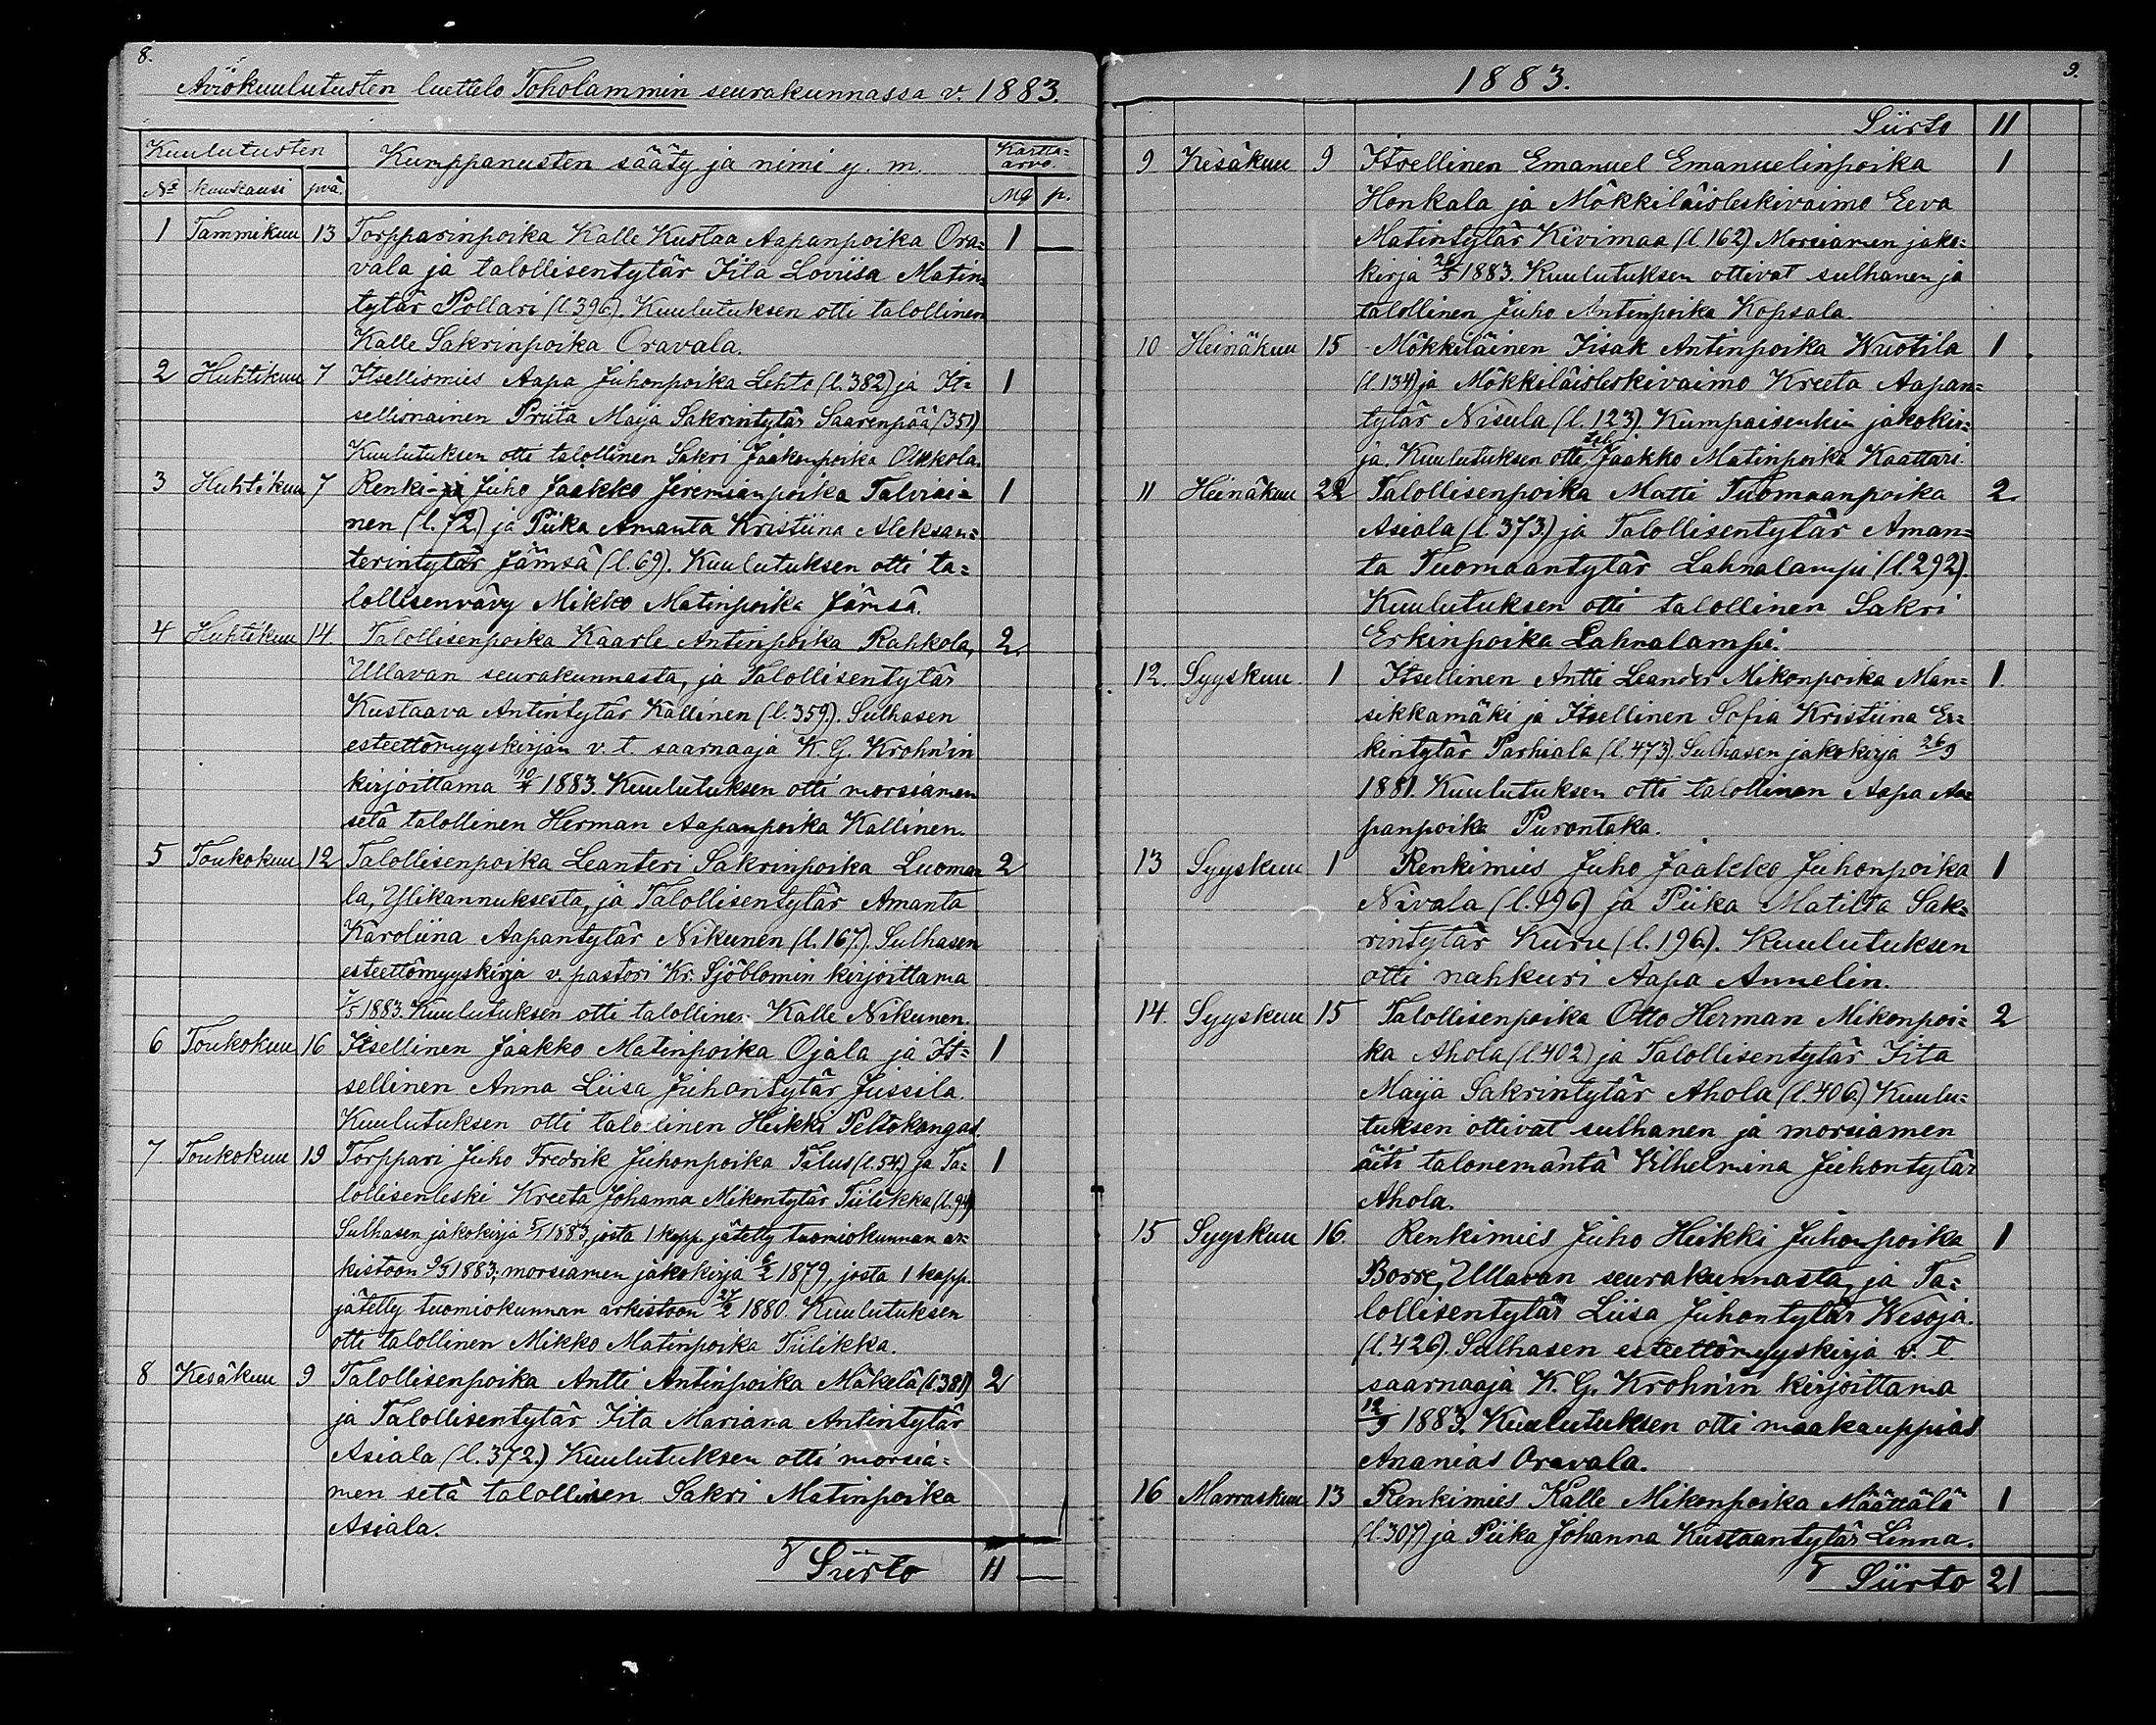 8.
Aviokuulutusten luettelo Toholammin seurakunnassa v. 1883.
Kuulutusten
Kumppanusten sääty ja nimi y. m.
Kartta-
arvo.
No kuukausi pvä.
Mq p.
1 Tammikuu 13 Torpparinpoika Kalle Kustaa Aapanpoika Ora= 1 —
vala ja talollisentytär Iita Loviisa Matin=
tytär Pollari (l. 396). Kuulutuksen otti talollinen
Kalle Sakrinpoika Oravala.
2 Huhtikuu 7 Itsellismies Aapa Juhonpoika Lehto (l. 382) ja It= 1
sellisnainen Priita Maija Sakrintytär Saarenpää (351)
Kuulutuksen otti talollinen Sakri Jaakonpoika
3 Huhtikuu 7 Renki Juho Jaakko Jeremianpoika Talvai= 1
nen (l. 72.) ja Piika Amanta Kristiina Aleksan=
terintytär Jämsä (l. 69). Kuulutuksen otti ta=
lollisenvävy Mikko Matinpoika Jämsä.
4 Huhtikuu 14. Talollisenpoika Kaarle Antinpoika Rahkola, 2.
Ullavan seurakunnasta, ja Talollisentytär
Kustaava Antintytär Kallinen (l. 359). Sulhasen
esteettömyyskirjan v. t. saarnaaja K. G. Krohn'in
kirjoittama 10/4 1883. Kuulutuksen otti morsiamen
setä talollinen Herman Aapanpoika Kallinen.
5 Toukokuu 12 Talollisenpoika Leanteri Sakrinpoika Luoma= 2
la, Ylikannuksesta, ja Talollisentytär Amanta
Karoliina Aapantytär Nikunen (l. 167.) Sulhasen
esteettömyyskirja v. pastori Kr. Sjöblomin kirjoittama
/5 1883. Kuulutuksen otti talollinen Kalle Nikunen.
6 Toukokuu 16 Itsellinen Jaakko Matinpoika Ojala ja It= 1
sellinen Anna Liisa Juhontytär Jussila.
Kuulutuksen otti talollinen Heikki Peltokangas.
7. Toukokuu 19 Torppari Juho Fredrik Juhonpoika Tilus (l. 54.) ja Ta= 1
lollisenleski Kreeta Johanna Mikontytär Tiilikka (l. 94)
Sulhasen jakokirja 1883, josta 1 kapp. jätetty tuomiokunnan ar=
kistoon 9/3 1883; morsiamen jakokirja 6/2 1879, josta 1 kapp.
jätetty tuomiokunnan arkistoon 27/2 1880. Kuulutuksen
otti talollinen Mikko Matinpoika Tiilikka.
8 Kesäkuu 9 Talollisenpoika Antti Antinpoika Mäkelä (l. 381) 2
ja Talollisentytär Iita Mariana Antintytär
Asiala (l. 372.) Kuulutuksen otti morsia=
men setä talollinen Sakri Matinpoika
Asiala.
Siirto 11 —
9.
1883.
Siirto 11
9 Kesäkuu 9 Itsellinen Emanuel Emanuelinpoika 1
Honkala ja Mökkiläisleskivaimo Eeva
Matintytär Kivimaa (l. 162) Morsiamen jako=
kirja 26/5 1883. Kuulutuksen ottivat sulhanen ja
talollinen Juho Antinpoika Kopsala.
10 Heinäkuu 15 Mökkiläinen Iisak Antinpoika Wuotila 1
(l. 134) ja Mökkiläisleskivaimo Kreeta Aapan=
tytär Nisula (l. 123). Kumpaisenkin jakokir=
ja. Kuulutuksen otti tal. Jaakko Matinpoika Kaattari.
11 Heinäkuu 22 Talollisenpoika Matti Tuomaanpoika 2
Asiala (l. 373.) ja Talollisentytär Aman=
ta Tuomaantytär Lahnalampi (l. 292).
Kuulutuksen otti talollinen Sakri
Erkinpoika Lahnalampi.
12. Syyskuu 1 Itsellinen Antti Leander Mikonpoika Man= 1.
sikkamäki ja Itsellinen Sofia Kristiina Er=
kintytär Parhiala (l. 473). Sulhasen jakokirja 26/9
1881. Kuulutuksen otti talollinen Aapa Aa=
panpoika Purontaka.
13 Syyskuu 1 Renkimies Juho Jaakko Juhonpoika 1
Nivala (l. 196) ja Piika Matilta Sak=
rintytär Kuru (l. 196). Kuulutuksen
otti nahkuri Aapa Annelin.
14. Syyskuu 15 Talollisenpoika Otto Herman Mikonpoi= 2
ka Ahola (l 402) ja Talollisentytär Iita
Maija Sakrintytär Ahola (l. 406.) Kuulu=
tuksen ottivat sulhanen ja morsiamen
äiti talonemäntä Vilhelmina Juhontytär
Ahola.
15 Syyskuu 16. Renkimies Juho Heikki Juhonpoika 1
Borre, Ullavan seurakunnasta, ja Ta=
lollisentytär Liisa Juhontytär Wesoja.
(l. 426). Sulhasen esteettömyyskirja v. t.
saarnaaja K. G. Krohn'in kirjoittama
12/9 1883. Kuulutuksen otti maakauppias
Ananias Oravala.
16 Marraskuu 13 Renkimies Kalle Mikonpoika Määttälä 1
(l. 307) ja Piika Johanna Kustaantytär Linna.
Siirto 21